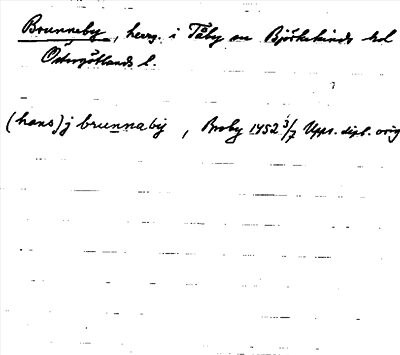 Brunneby, herrg. i Tåby sn Björkekinds hd
Östergötlands l.
(hans) j brunnaby, Broby 1452 3/7 Upps. dipl. orig